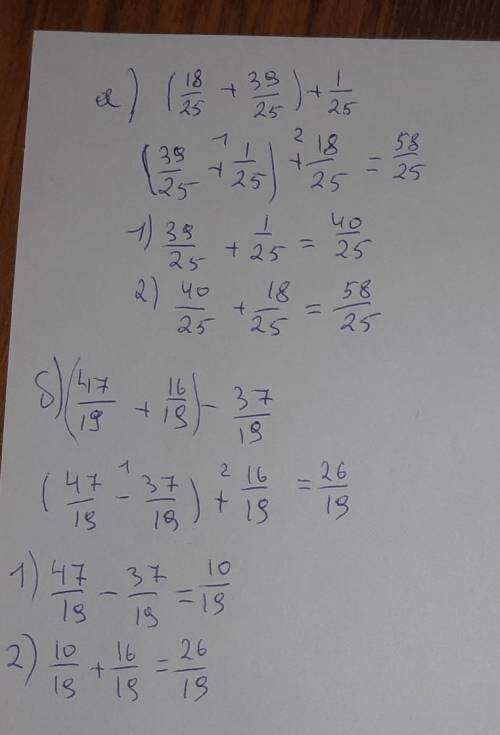 а) (18/25 + 39/25) + 1/25
(39/25 +¹ 1/25) +² 18/25 = 58/25
1) 39/25 + 1/25 = 40/25
2) 40/25 + 18/25 = 58/25
б) (47/19 + 16/19) - 37/19
(47/19 -¹ 37/19) +² 16/19 = 26/19
1) 47/19 - 37/19 = 10/19
2) 10/19 + 16/19 = 26/19